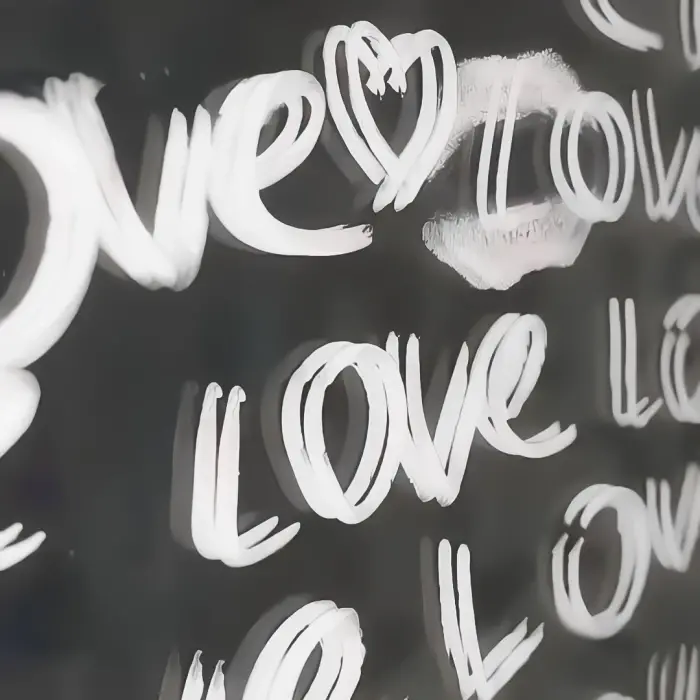 ove♡ Lov
Love Lo
Lov